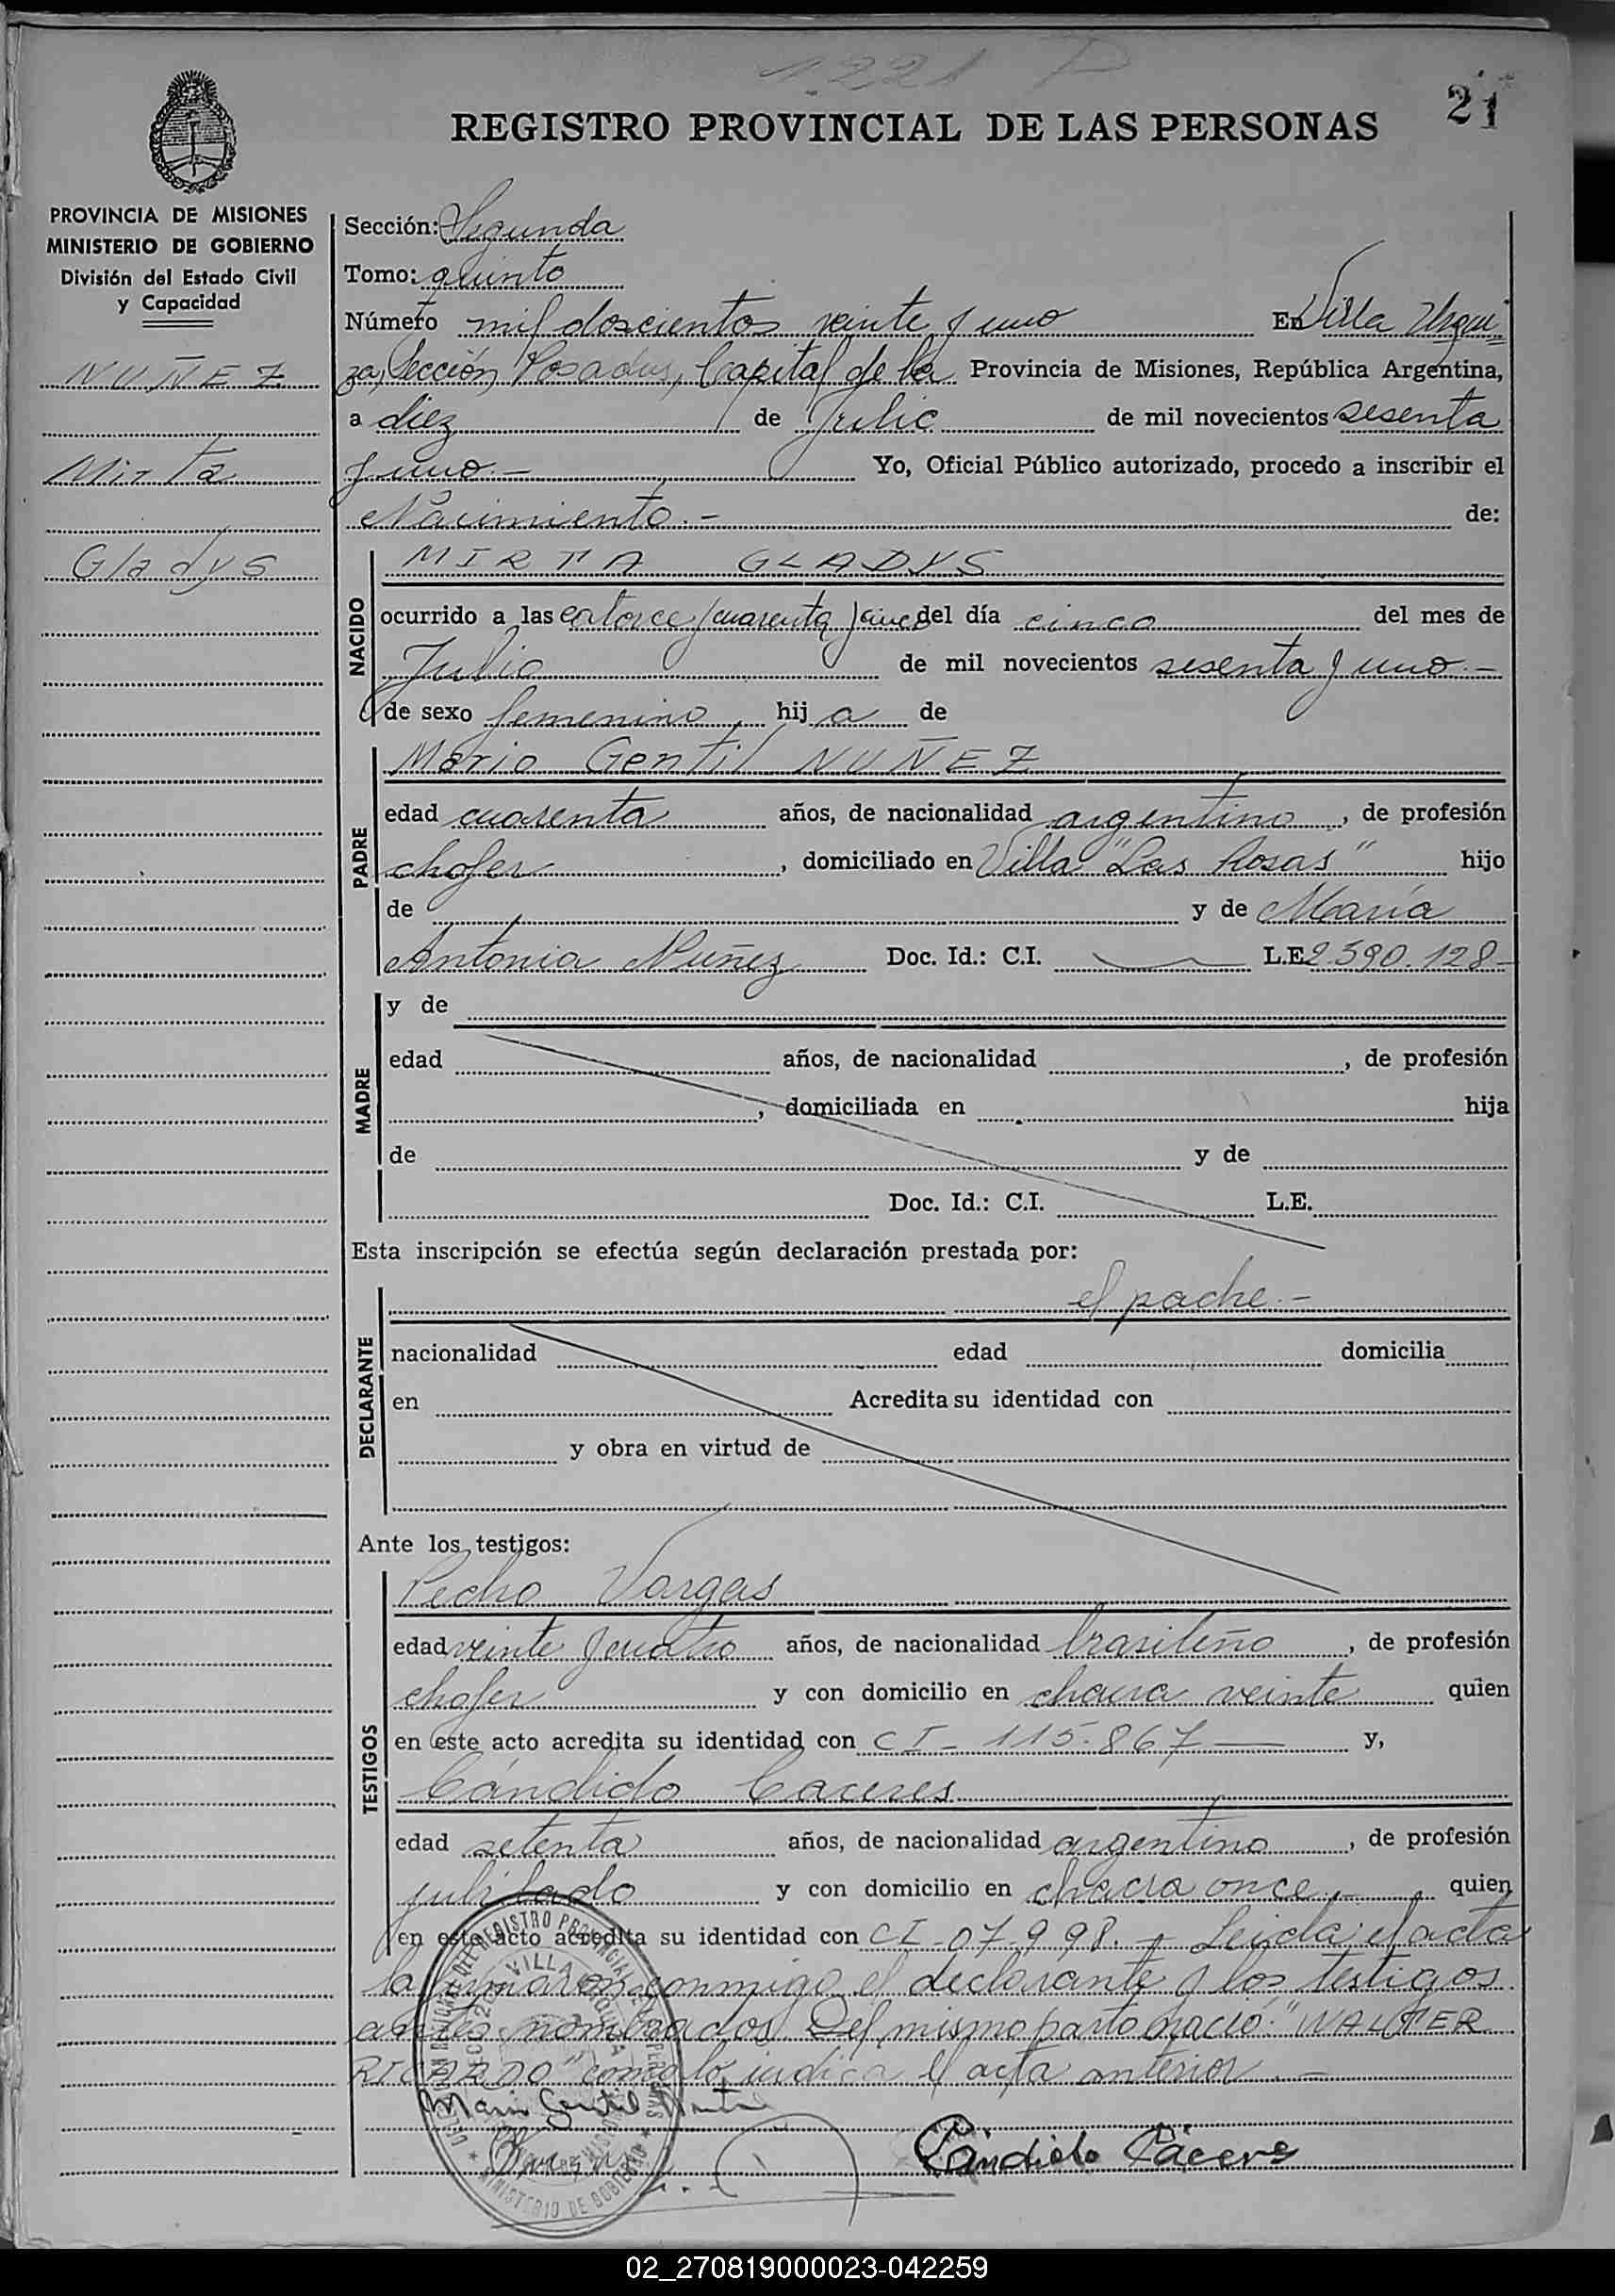 1221 P
21
REGISTRO PROVINCIAL DE LAS PERSONAS
PROVINCIA DE MISIONES
MINISTERIO DE GOBIERNO
División del Estado Civil
y Capacidad
NUÑEZ
Mirta
Gladys
Sección: Segunda
Tomo: quinto
Número mil doscientos veinte y uno En Villa Urqui
za, Sección Posadas, Capital de la Provincia de Misiones, República Argentina,
a diez de Julio de mil novecientos sesenta
y uno.- Yo, Oficial Público autorizado, procedo a inscribir el
Nacimiento.- de:
NACIDO
MIRTA GLADYS
ocurrido a las catorce y cuarenta y cinco del día cinco del mes de
Julio de mil novecientos sesenta y uno.-
de sexo femenino, hij a de
PADRE
Mario Gentil NUÑEZ
edad cuarenta años, de nacionalidad argentino, de profesión
chofer, domiciliado en Villa "Las Rosas" hijo
de y de María
Antonia Nuñez Doc. Id.: C.I. L.E. 2.590.128-
MADRE
y de
edad años, de nacionalidad , de profesión
, domiciliada en hija
de y de
Doc. Id.: C.I. L.E.
Esta inscripción se efectúa según declaración prestada por:
DECLARANTE
el padre.-
nacionalidad edad domicilia
en Acredita su identidad con
y obra en virtud de
Ante los testigos:
TESTIGOS
Pedro Vargas
edad veinte y cuatro años, de nacionalidad brasileño, de profesión
chofer y con domicilio en chacra veinte quien
en este acto acredita su identidad con CI- 115.867 y,
Cándido Caceres
edad setenta años, de nacionalidad argentino, de profesión
jubilado y con domicilio en chacra once,- quien
en este acto acredita su identidad con CI-07.998.- Leida el acta
la firmaron conmigo el declarante y los testigos
antes nombrados. Del mismo parto nació: "WALTER
RICARDO" como lo indica el acta anterior.-
Mario Gentil
Cándido Cáceres
02_270819000023-042259